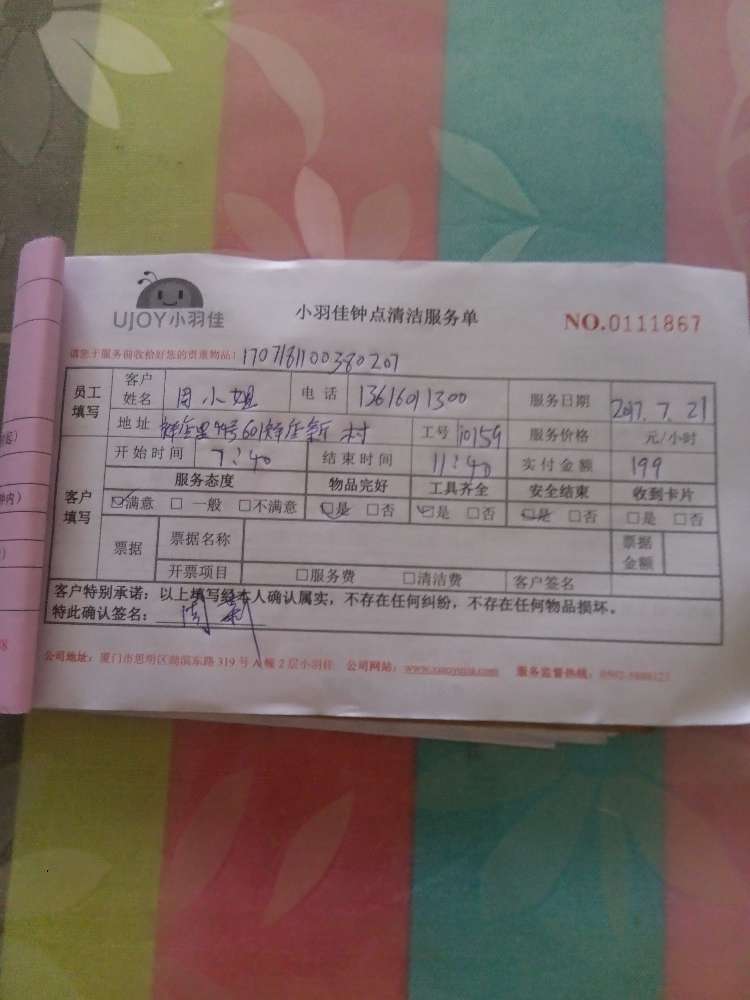 UJOY小羽佳
小羽佳钟点清洁服务单
NO.0111867
请您于服务前收拾好您的贵重物品:
1707181100380207
员工填写 客户姓名 周小姐 电话 13616011300 服务日期 2017.7.21
地址 号601 新村 工号 10159 服务价格 元/小时
客户填写 开始时间 7:40 结束时间 11:40 实付金额 199
服务态度 物品完好 工具齐全 安全结束 收到卡片
☑满意 □一般 □不满意 ☑是 □否 ☑是 □否 ☑是 □否 □是 □否
票据 票据名称 票据金额
开票项目 □服务费 □清洁费 客户签名
客户特别承诺:以上填写经本人确认属实,不存在任何纠纷,不存在任何物品损坏。
特此确认签名: 周
公司地址:厦门市思明区 东路319号A幢2层小羽佳 公司网站: 服务监督热线: